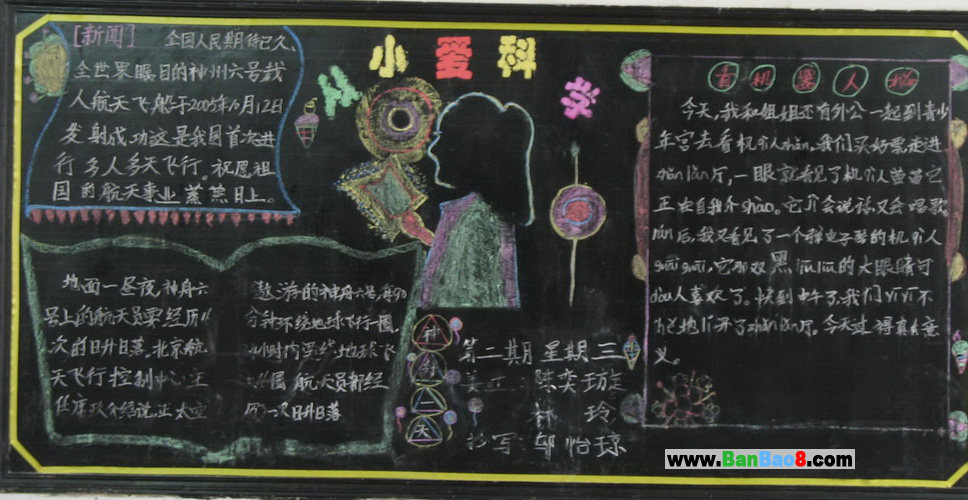 从小爱科学
[新闻] 全国人民期待已久、
全世界瞩目的神州六号载
人航天飞船于2005年10月12日
发射成功这是我国首次进
行多人多天飞行。祝愿祖
国的航天事业蒸蒸日上。
地面一昼夜,神舟六
号上的航天员要经历
次的日升日落。北京航
天飞行控制中心主
任 介绍说,在太空
遨游的神舟六号,每90
分钟环绕地球飞行一圈,
小时内要绕地球飞
圈 航天员都经
历一次日升日落
神
舟
天
第二期 星期三
陈奕璇
林 玲
抄写:邹怡琼
看机器人
今天,我和姐姐还有外公一起到青少
年宫去看机器人zhǎn。我们买好票走进
zhǎn lǎn厅,一眼就看见了机器人蕾蕾它
正在自我介shào。它不会说话又会唱歌
rán后,我又看见了一个弹电子琴的机器人
guāi guāi,它那双黑liū liū的大眼睛可
dòu人喜欢了。快到中午了,我们yī yī不
舍地lí开了zhǎn lǎn厅。今天过得真有意
义。
www.BanBao8.com